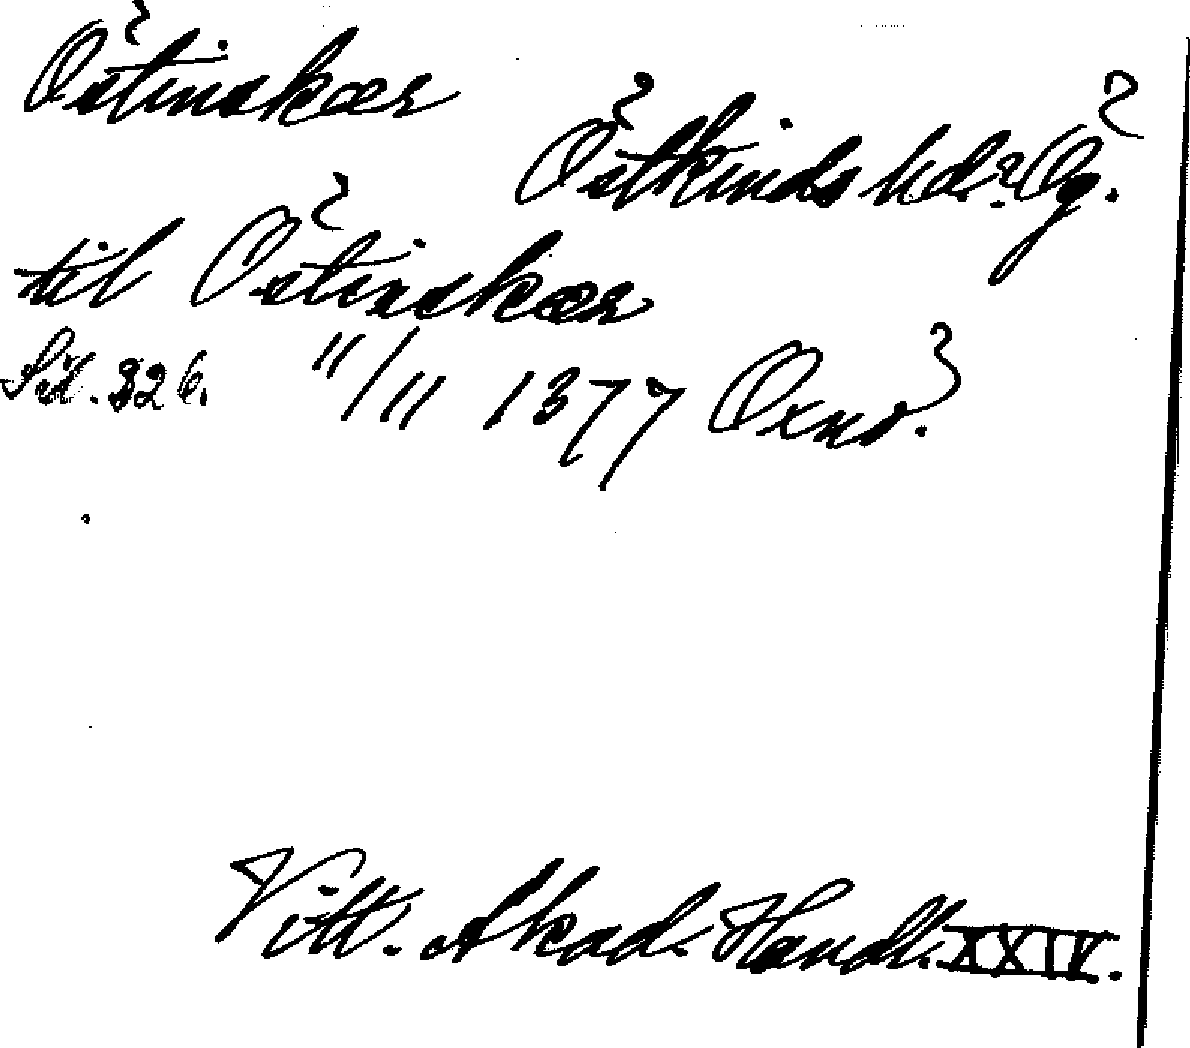 Östinskær
Östkinds hd.? Ög.
til Östinskær
Sid. 326. 11/11 1377 Öxnö.
Vitt. Akad. Handl. XXIV.